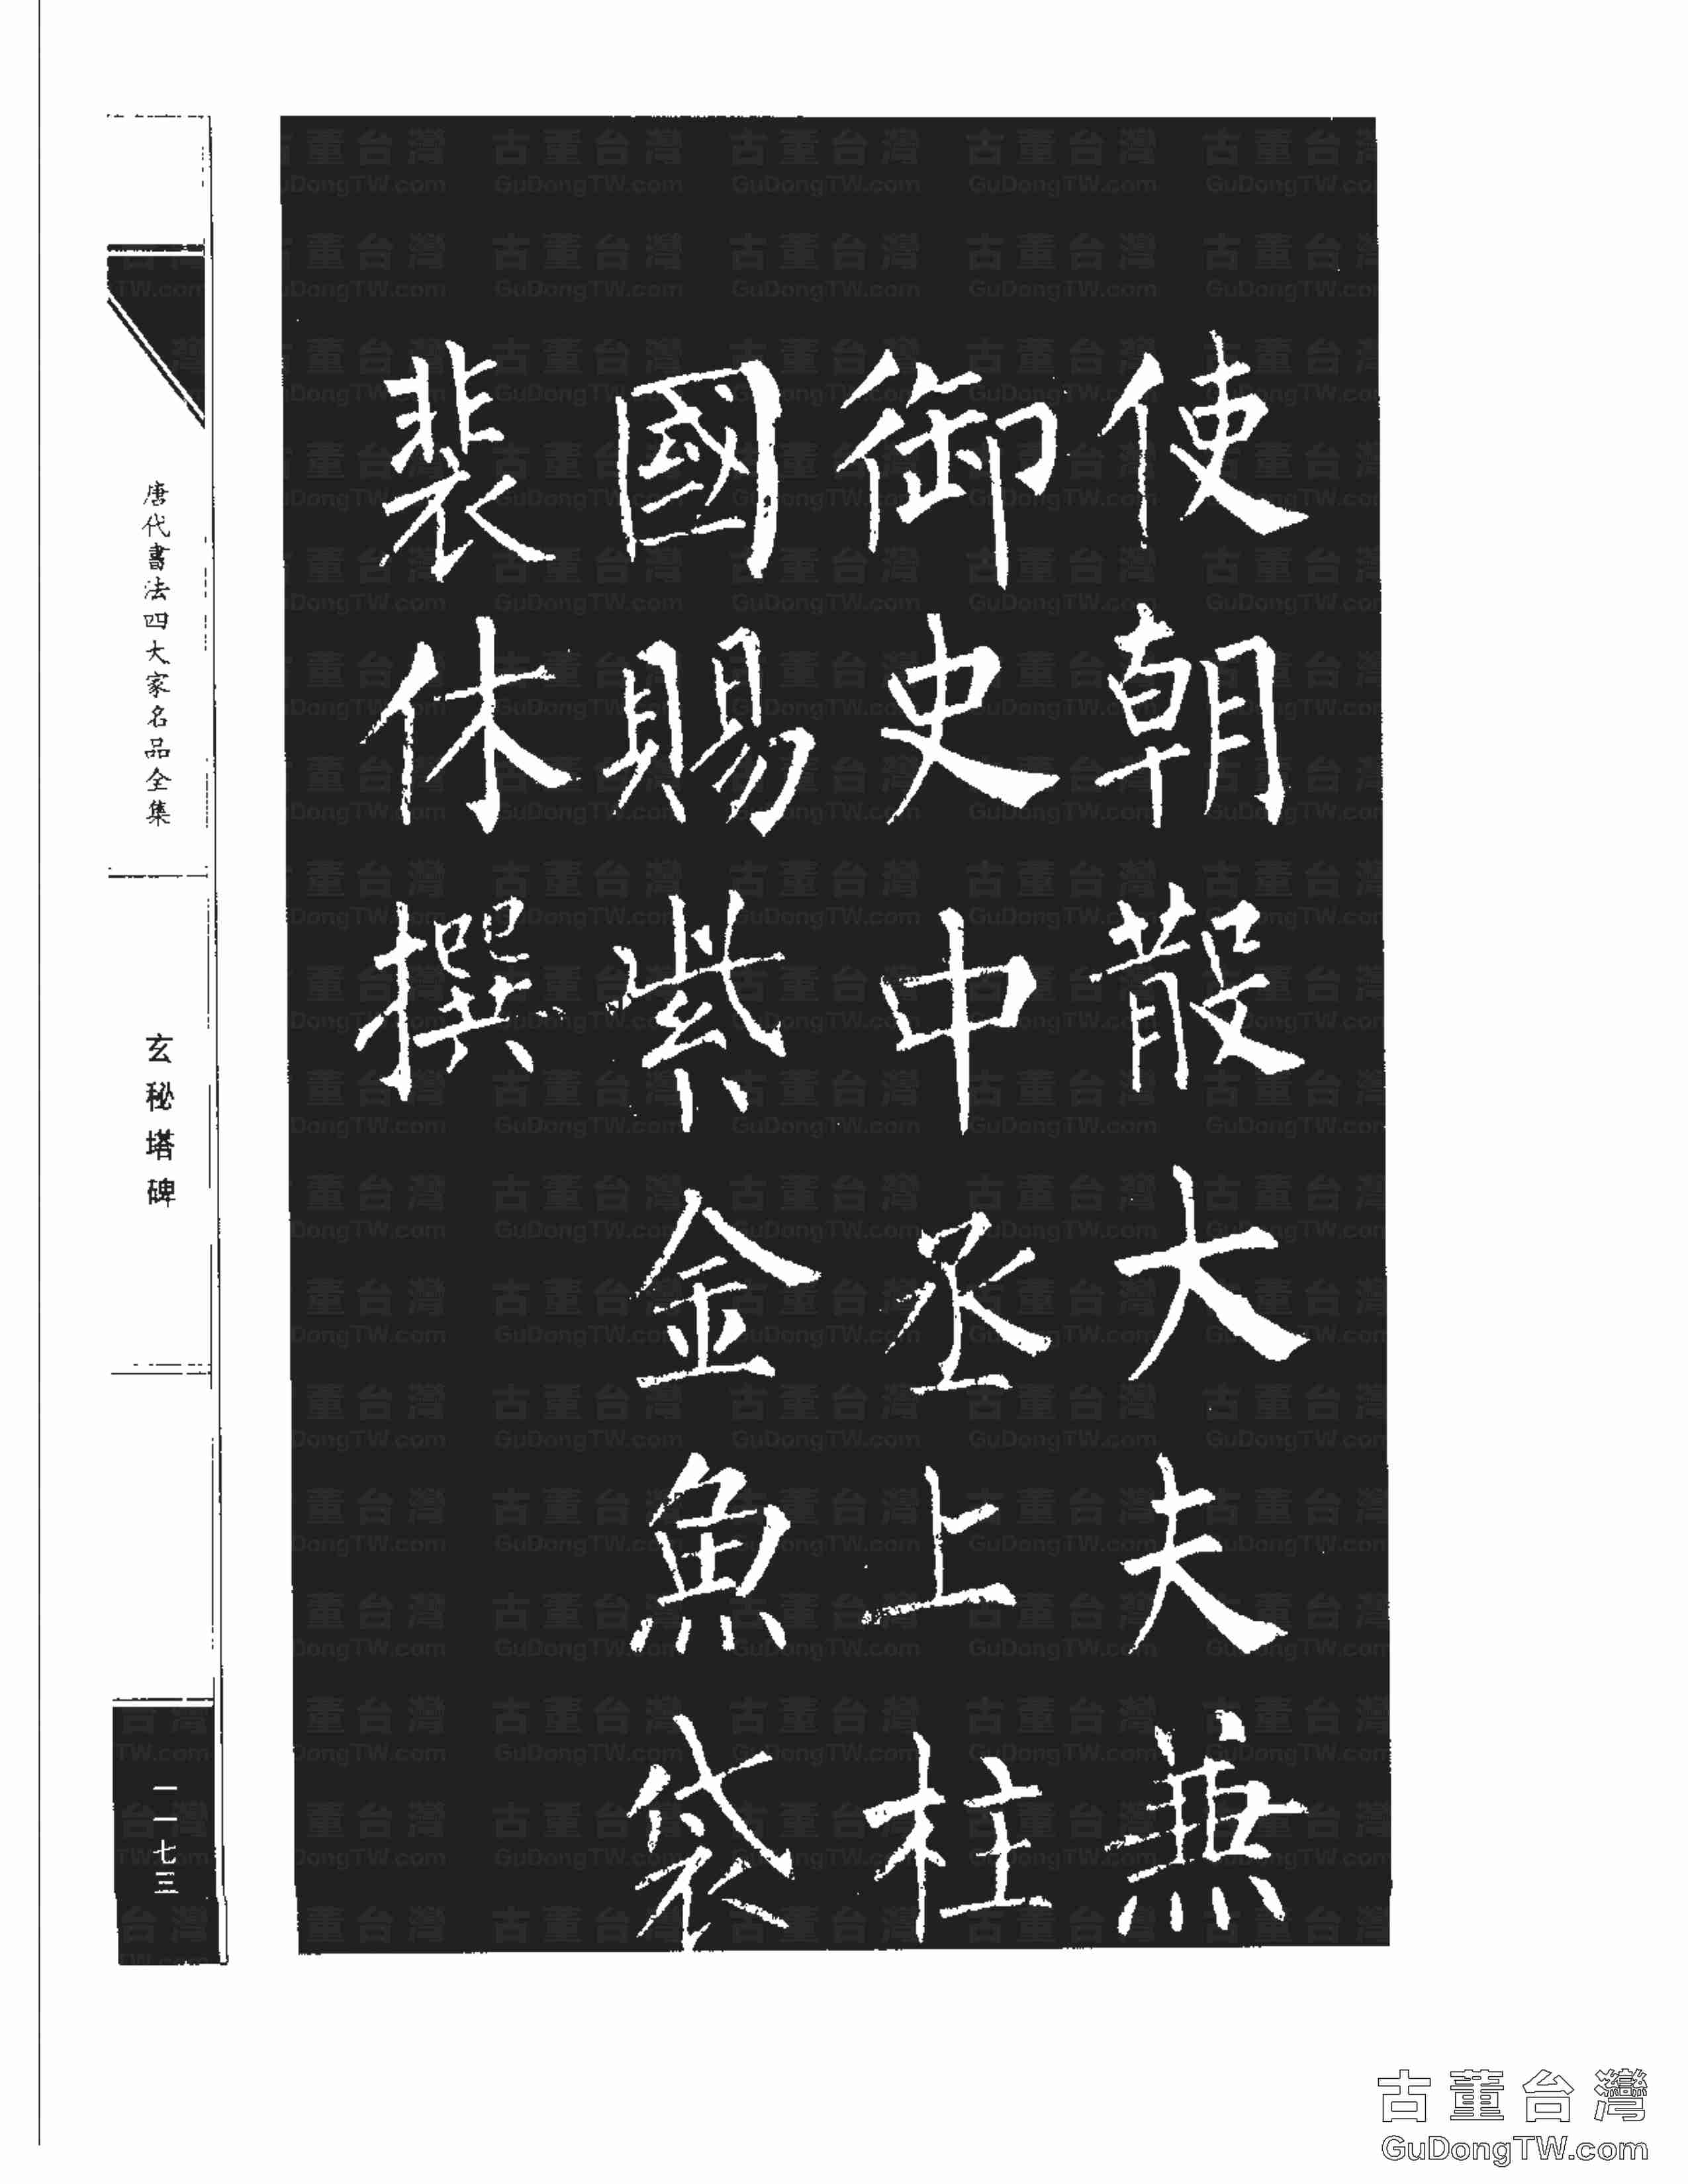 使朝散大夫兼
御史中丞上柱
國賜紫金魚袋
裴休撰
唐代書法四大家名品全集
玄秘塔碑
一一七三
古董台灣
GuDongTW.com